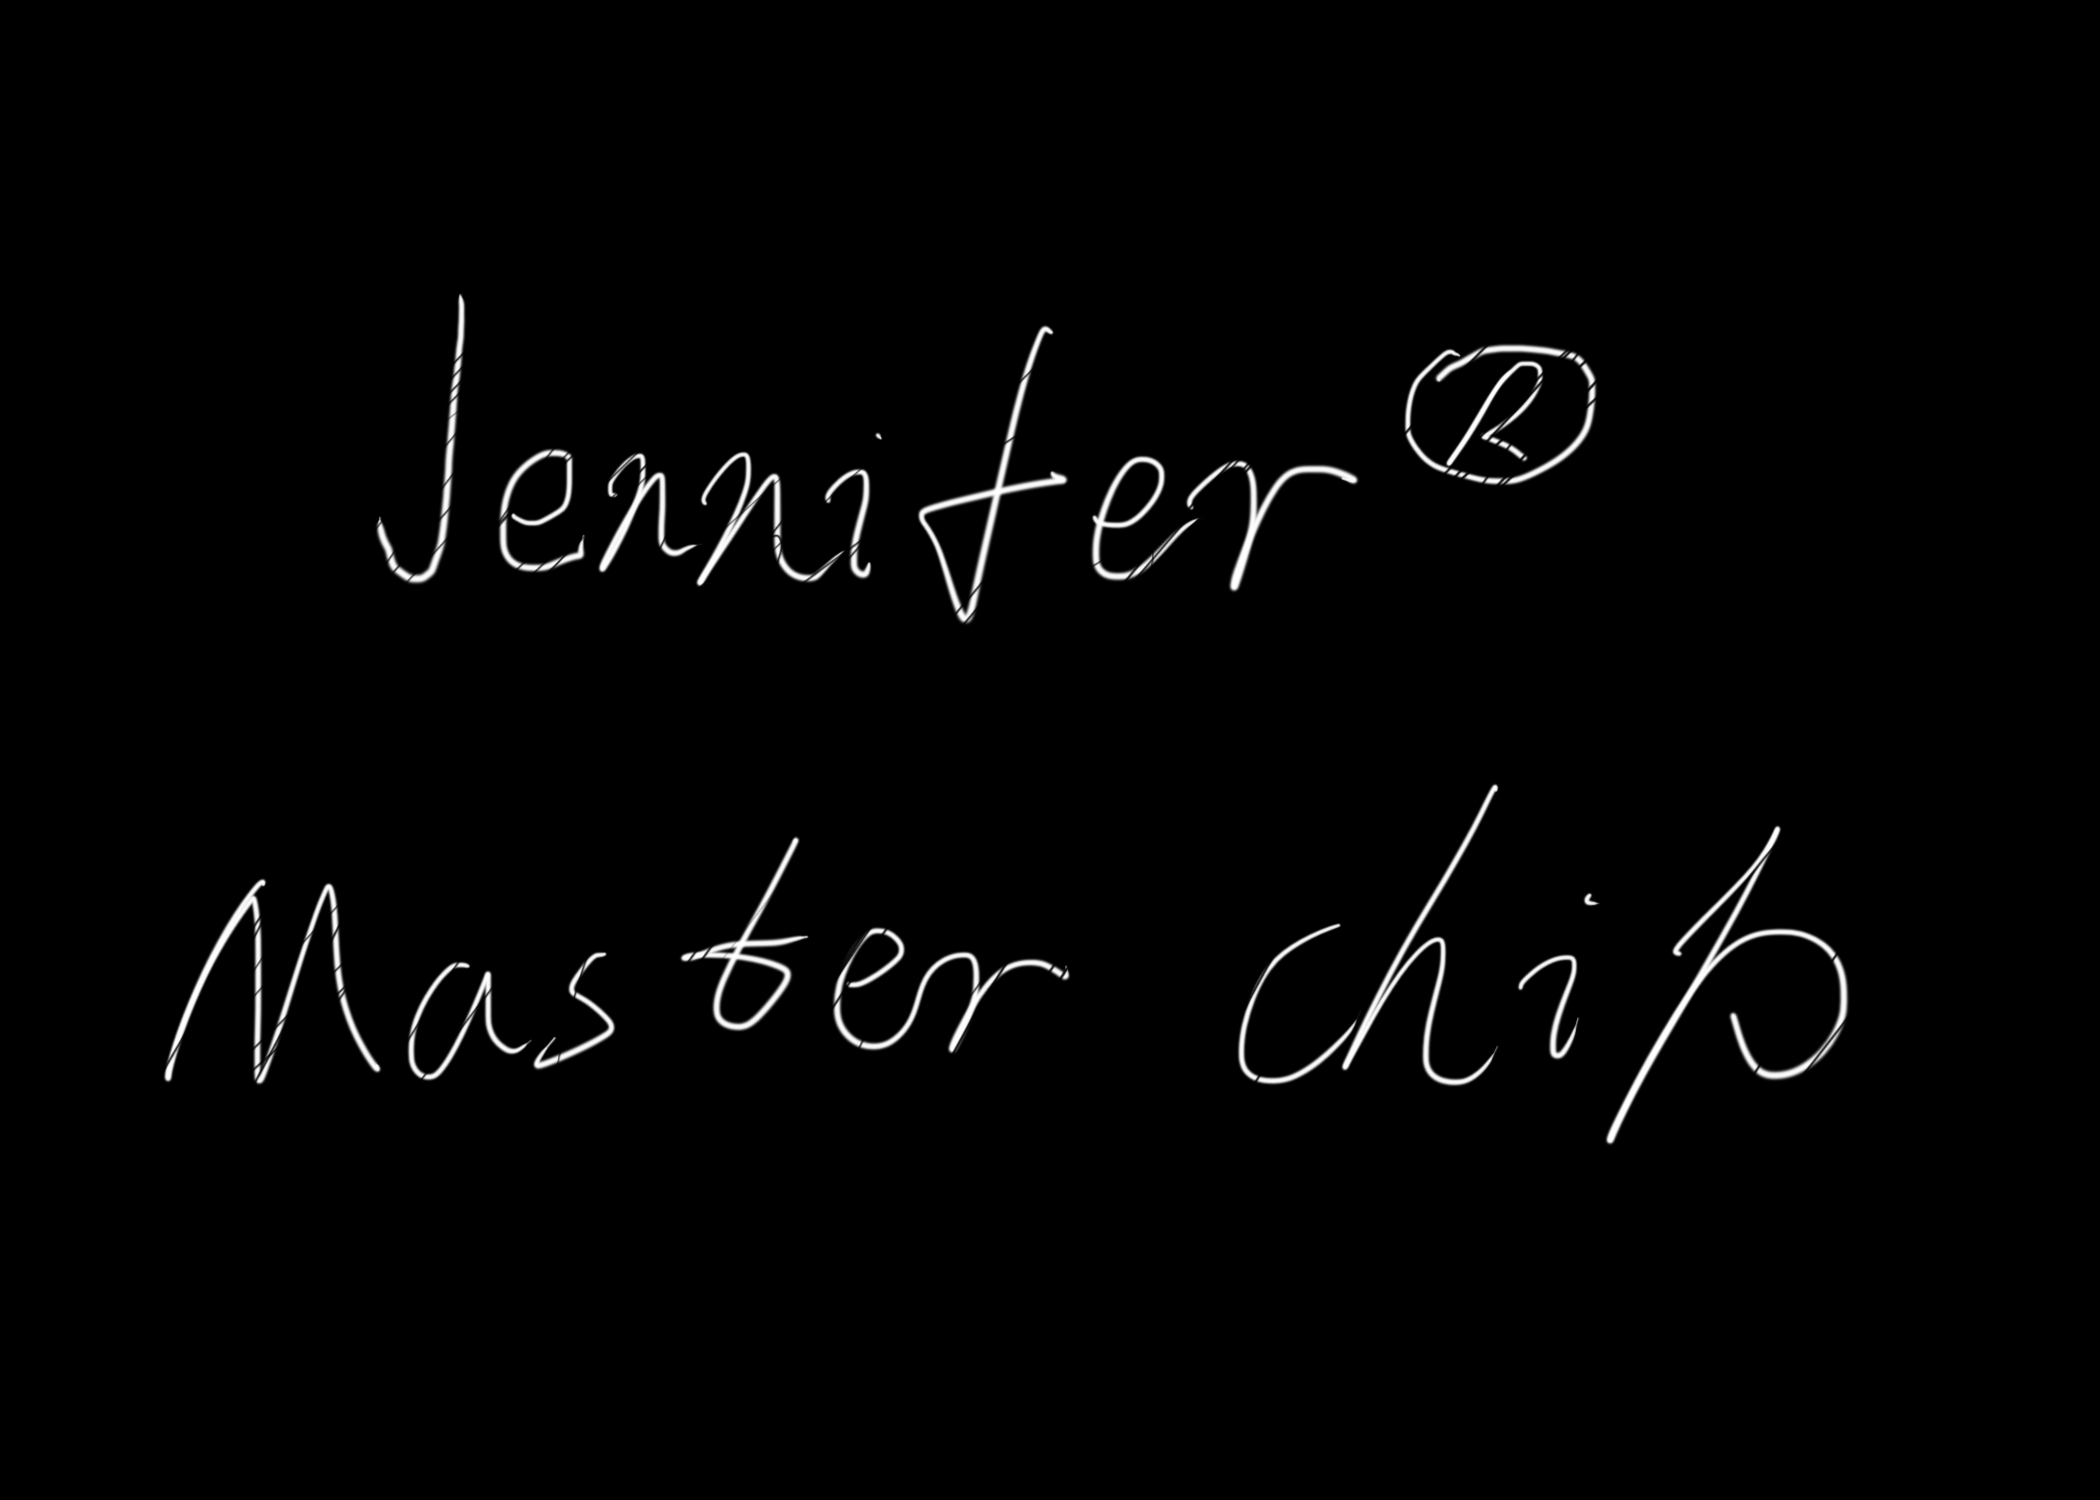 Jennifer®
Master chip